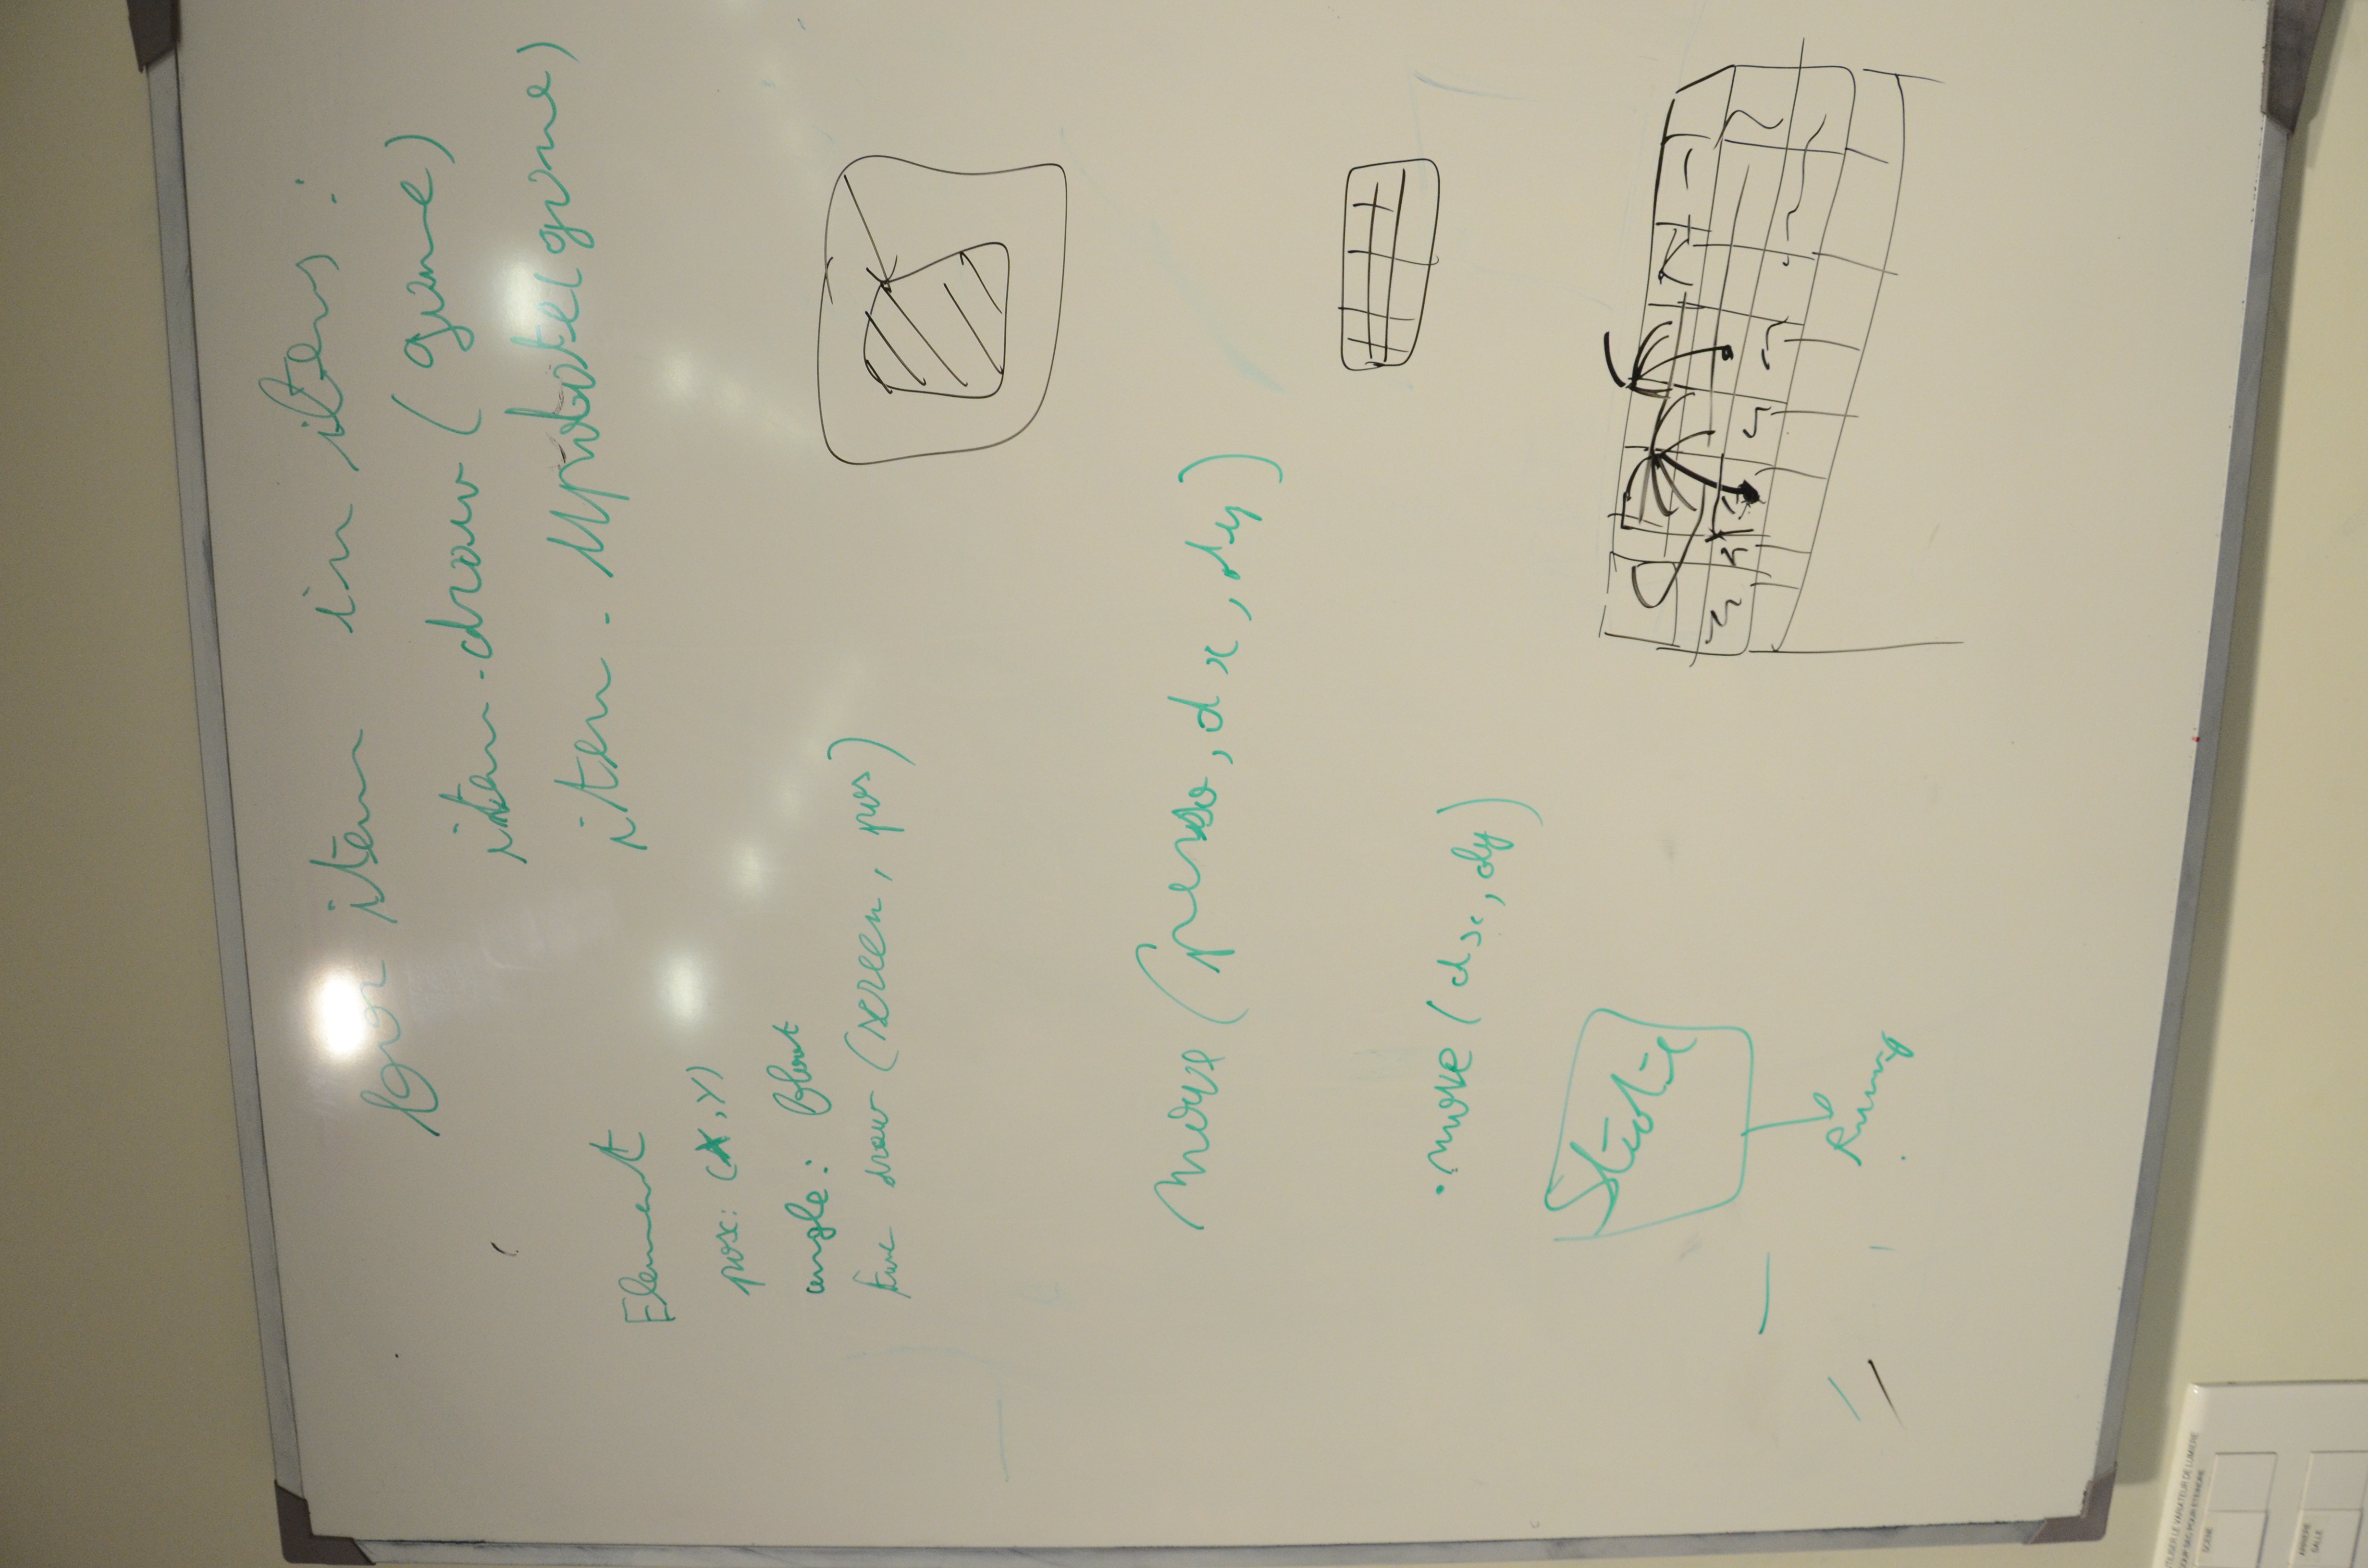 for item in items :
item.draw ( game )
item.Update(game)
Element
pos: (X,Y)
angle: float
func draw (screen, pos)
move (perso, dx, dy)
.move (dx, dy)
Static
UTILISER LE VARIATEUR DE LUMIERE
POUR ETEINDRE
SCENE
ARRIERE
SALLE